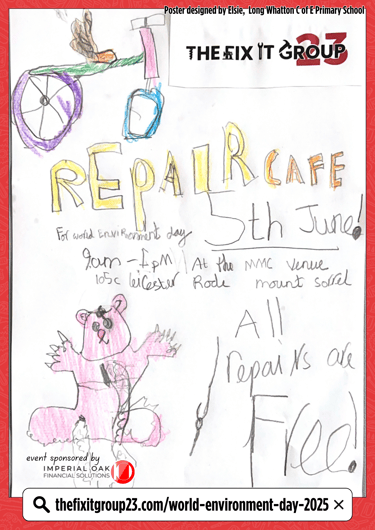 Poster designed by Elsie, Long Whatton C of E Primary School
THE FIX IT GROUP
23
REPAIR CAFE
For world EnviRonment day
5th June!
9am - 1pm
At the MMC venue
105c leicester Rode mount sorrel
All
repairs are
Free!
event sponsored by
IMPERIAL OAK
FINANCIAL SOLUTIONS
thefixitgroup23.com/world-environment-day-2025